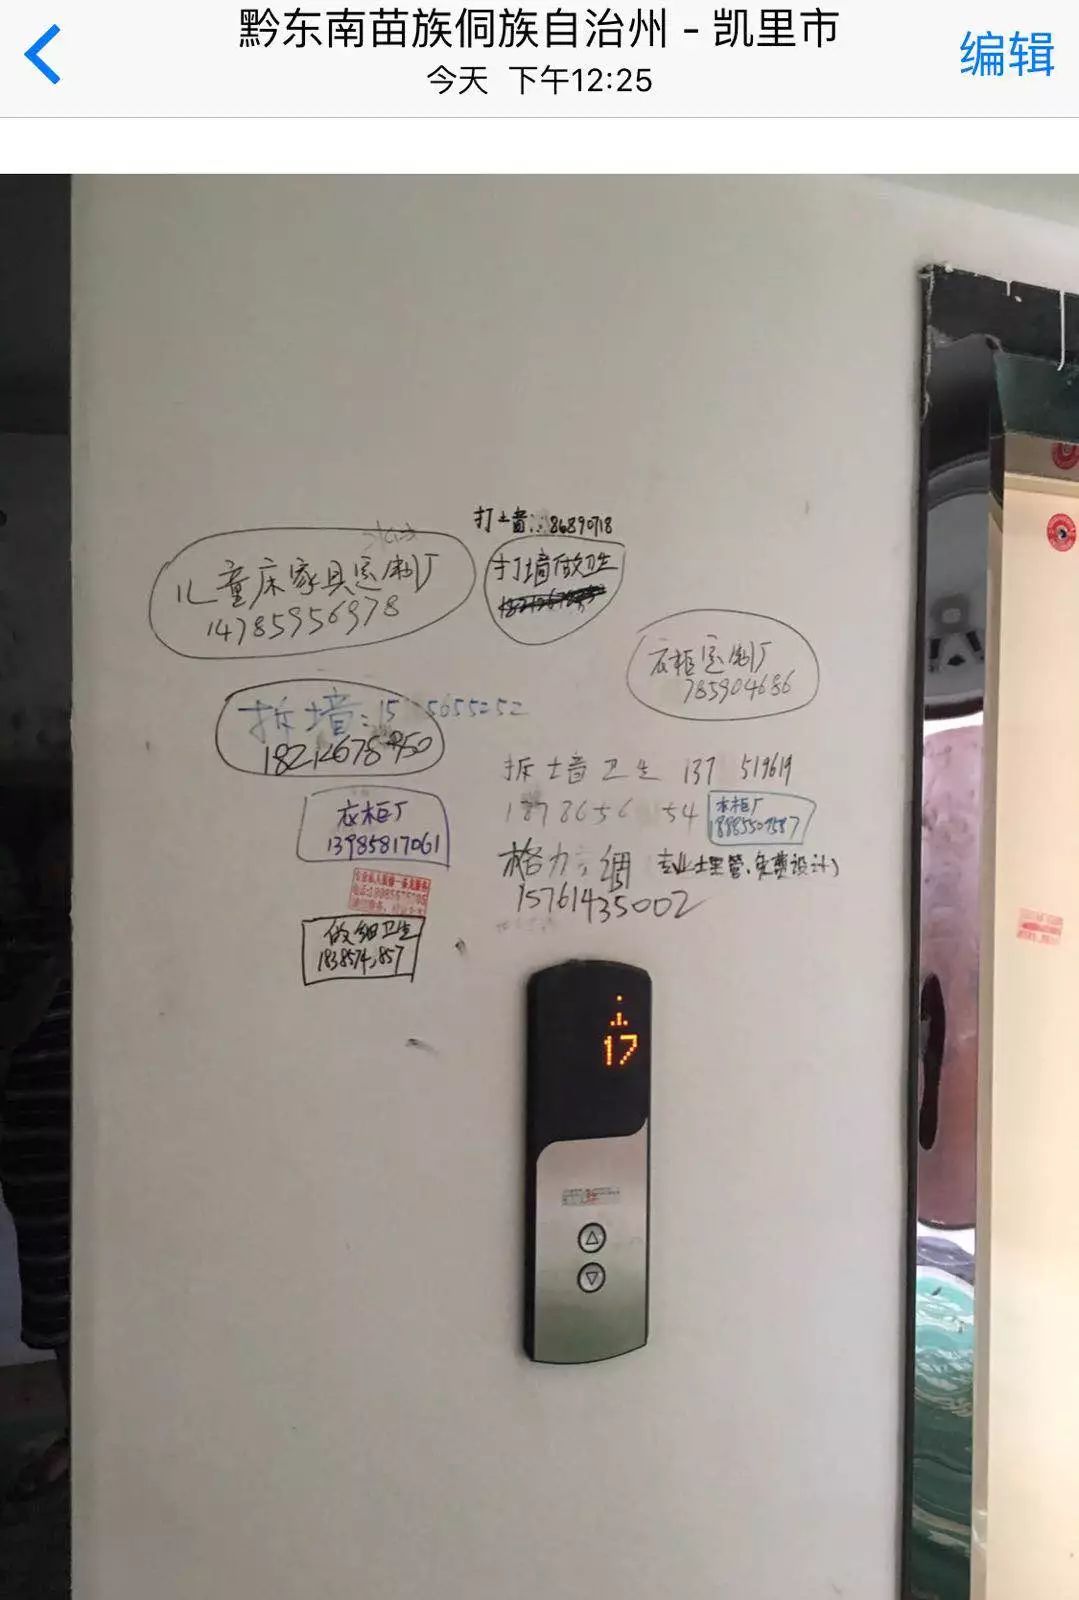 黔东南苗族侗族自治州 - 凯里市
今天 下午12:25
编辑
打墙:
86890718
儿童床家具定制厂
14785956978
打墙做卫生
衣柜定制厂
785904686
拆墙:15
5655252
18212678950
拆墙卫生 137 519619
1878656 54
衣柜厂
13985817061
衣柜厂
格力空调 (专业埋管.免费设计)
15761435002
做细卫生
17